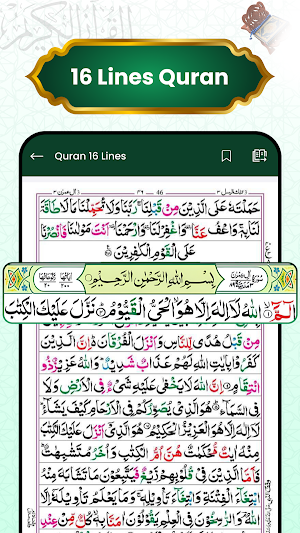 القرآن الكريم
16 Lines Quran
Quran 16 Lines
46
حَمَلْتَهٗ عَلَى الَّذِیْنَ مِنْ قَبْلِنَا رَبَّنَا وَلَا تُحَمِّلْنَا مَا لَا طَاقَةَ
لَنَا بِهٖ وَاعْفُ عَنَّا وَاغْفِرْ لَنَا وَارْحَمْنَا اَنْتَ مَوْلٰىنَا فَانْصُرْنَا
عَلَى الْقَوْمِ الْكٰفِرِیْنَ
بِسْمِ اللّٰهِ الرَّحْمٰنِ الرَّحِیْمِ
الٓمّٓ اللّٰهُ لَاۤ اِلٰهَ اِلَّا هُوَ الْحَیُّ الْقَیُّوْمُ نَزَّلَ عَلَیْكَ الْكِتٰبَ
مِنْ قَبْلُ هُدًى لِّلنَّاسِ وَاَنْزَلَ الْفُرْقَانَ اِنَّ الَّذِیْنَ
كَفَرُوْا بِاٰیٰتِ اللّٰهِ لَهُمْ عَذَابٌ شَدِیْدٌ وَاللّٰهُ عَزِیْزٌ ذُو
انْتِقَامٍ اِنَّ اللّٰهَ لَا یَخْفٰى عَلَیْهِ شَیْءٌ فِی الْاَرْضِ وَلَا
فِی السَّمَآءِ هُوَ الَّذِیْ یُصَوِّرُكُمْ فِی الْاَرْحَامِ كَیْفَ یَشَآءُ
لَاۤ اِلٰهَ اِلَّا هُوَ الْعَزِیْزُ الْحَكِیْمُ هُوَ الَّذِیْۤ اَنْزَلَ عَلَیْكَ الْكِتٰبَ
مِنْهُ اٰیٰتٌ مُّحْكَمٰتٌ هُنَّ اُمُّ الْكِتٰبِ وَاُخَرُ مُتَشٰبِهٰتٌ
فَاَمَّا الَّذِیْنَ فِیْ قُلُوْبِهِمْ زَیْغٌ فَیَتَّبِعُوْنَ مَا تَشَابَهَ مِنْهُ
ابْتِغَآءَ الْفِتْنَةِ وَابْتِغَآءَ تَاْوِیْلِهٖ وَمَا یَعْلَمُ تَاْوِیْلَهٗۤ اِلَّا
اللّٰهُ وَالرّٰسِخُوْنَ فِی الْعِلْمِ یَقُوْلُوْنَ اٰمَنَّا بِهٖ كُلٌّ مِّنْ عِنْدِ